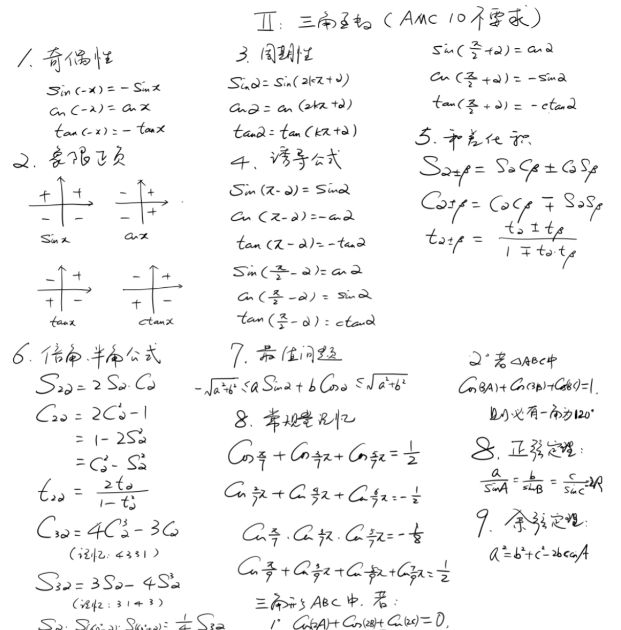 II: 三角函数 (AMC 10 不要求)
1. 奇偶性
sin(-x) = -sinx
cos(-x) = cosx
tan(-x) = -tanx
2. 象限正负
+ +
- -
sinx
- +
- +
cosx
- +
+ -
tanx
- +
+ -
ctanx
3. 周期性
Sinα = sin(2kπ+α)
cosα = cos(2kπ+α)
tanα = tan(kπ+α)
4. 诱导公式
Sin(π-α) = sinα
cos(π-α) = -cosα
tan(π-α) = -tanα
Sin(π/2 - α) = cosα
cos(π/2 - α) = sinα
tan(π/2 - α) = ctanα
sin(π/2 + α) = cosα
cos(π/2 + α) = -sinα
tan(π/2 + α) = -ctanα
5. 和差化积
Sα±β = SαCβ ± CαSβ
Cα±β = CαCβ ∓ SαSβ
tα±β = (tα ± tβ)/(1 ∓ tα·tβ)
6. 倍角.半角公式
S2α = 2Sα·Cα
C2α = 2C²α - 1
= 1 - 2S²α
= C²α - S²α
t2α = 2tα/(1 - t²α)
C3α = 4C³α - 3Cα
(记忆: 4331)
S3α = 3Sα - 4S³α
(记忆: 3143)
7. 最值问题
-√(a²+b²) ≤ a Sinα + b Cosα ≤ √(a²+b²)
8. 常规量记忆
Cos π/7 + Cos 3/7π + Cos 5/7π = 1/2
Cos 2/7π + Cos 4/7π + Cos 6/7π = -1/2
Cos π/7 · Cos 3/7π · Cos 5/7π = -1/8
Cos π/9 + Cos 3/9π + Cos 5/9π + Cos 7/9π = 1/2
三角形ABC中, 若:
1° Cos(2A) + Cos(2B) + Cos(2C) = 0,
2° 若△ABC中
Cos(3A) + Cos(3B) + Cos(3C) = 1.
则必有一角为120°
8. 正弦定理:
a/sinA = b/sinB = c/sinC = 2R
9. 余弦定理:
a² = b² + c² - 2bccosA